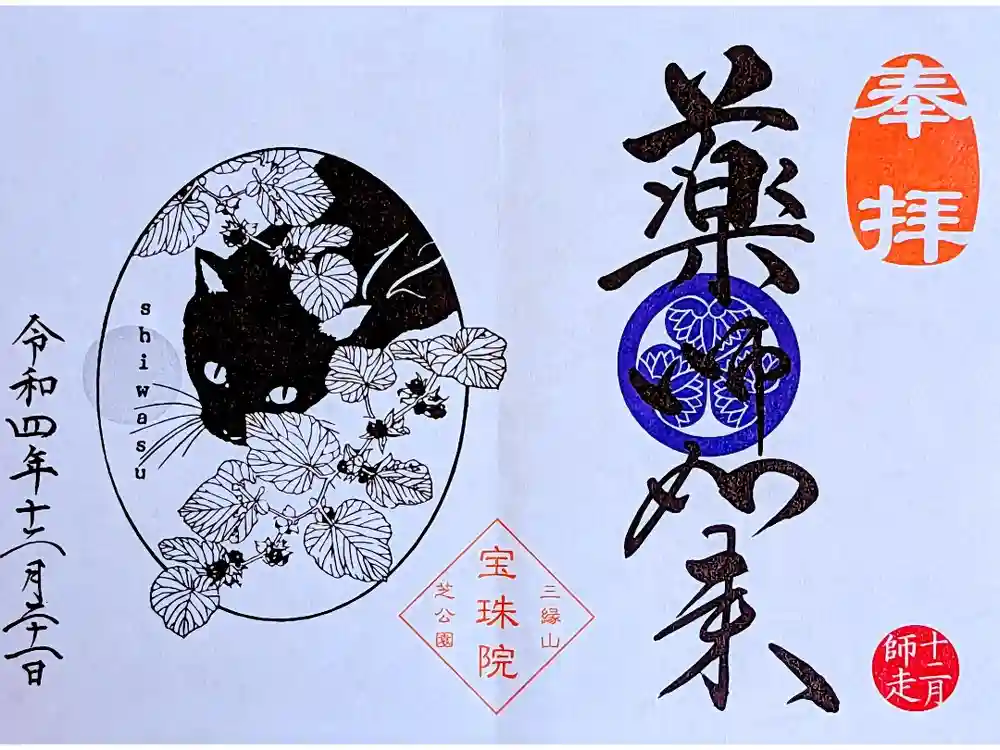 奉拝
薬師如来
十二月
師走
三縁山
宝珠院
芝公園
12
shiwasu
令和四年十二月二十一日